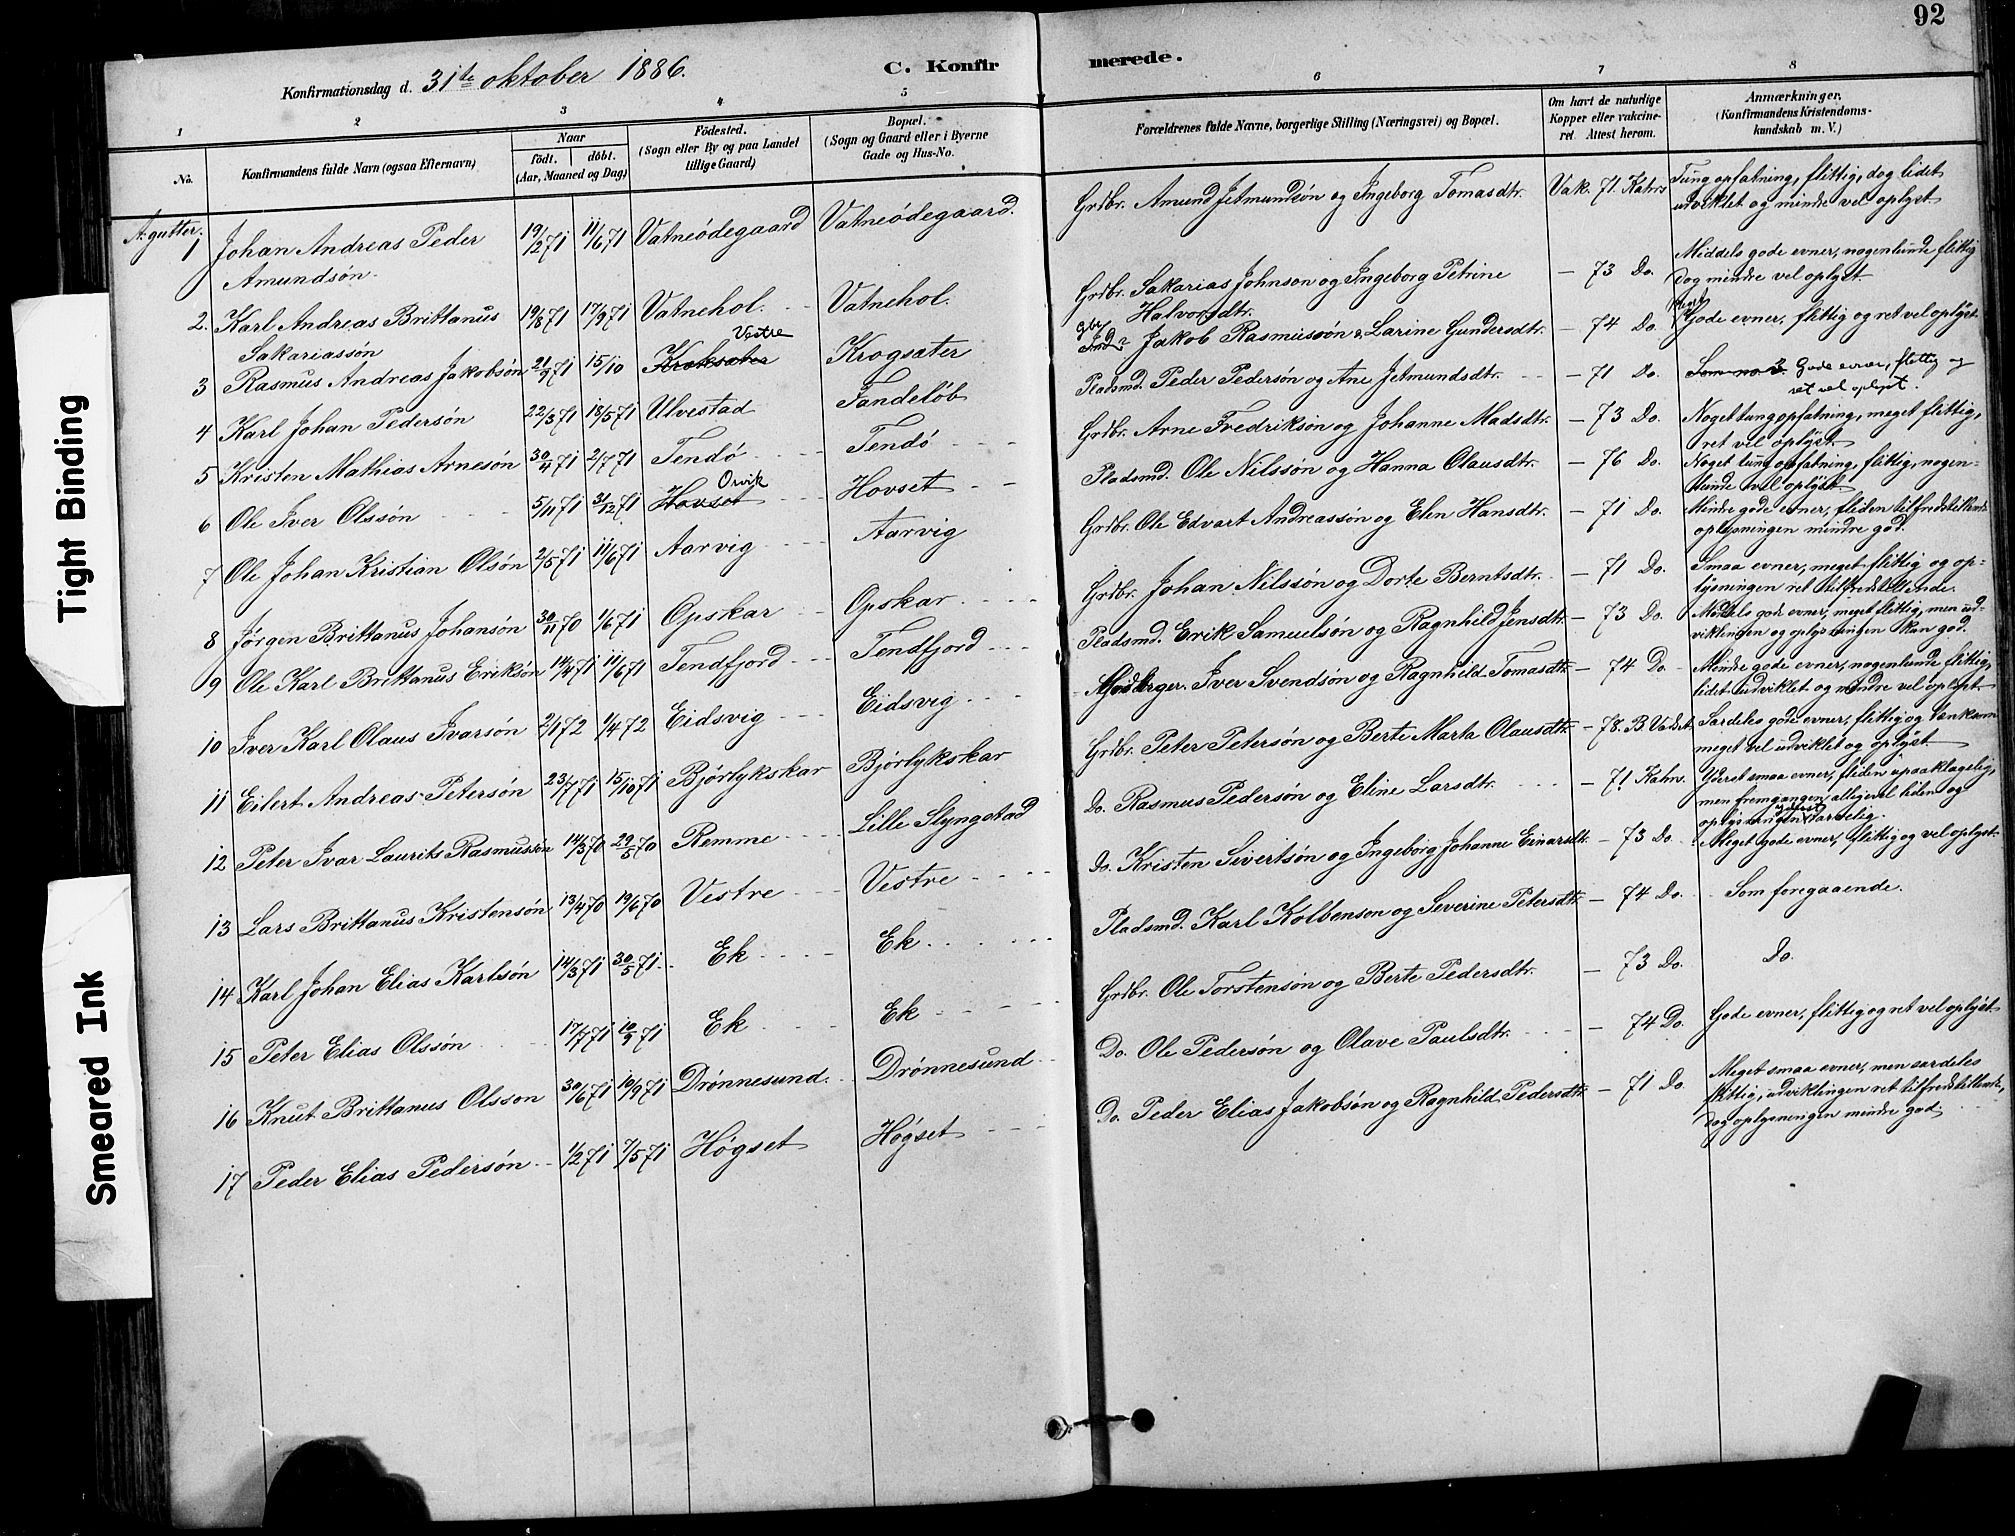 92
Konfirmationsdag d. 31te oktober 1886.
C. Konfirmerede.
1 2 3 4 5 6 7 8
No.
Konfirmandens fulde Navn (ogsaa Efternavn)
Naar
født. døbt.
(Aar, Maaned og Dag)
Fødested.
(Sogn eller By og paa Landet
tillige Gaard)
Bopæl.
(Sogn og Gaard eller i Byerne
Gade og Hus-No.
Forældrenes fulde Navne, borgerlige Stilling (Næringsvei) og Bopæl.
Om havt de naturlige
Kopper eller vakcine-
ret. Attest herom.
Anmærkninger,
(Konfirmandens Kristendoms-
kundskab m. V.)
A. gutter.
1 Johan Andreas Peder Amundsön 19/2 71 11/6 71 Vatneödegaard Vatneödegaard. Grdbr. Amund Jetmundsön og Ingeborg Tomasdtr. Vak. 71. Kahrs Tung opfatning, flittig, dog lidet udviklet og mindre vel oplyst
2. Karl Andreas Brittanus Sakariassön 19/8 71 17/9 71 Vatnehol. Vatnehol. Grdbr. Sakarias Johnson og Ingeborg Petrine Halvorsdtr. – 73 Do. Middels gode evner, nogenlunde flittig dog mindre vel oplyst.
3 Rasmus Andreas Jakobsön 21/9 71 15/10 Vestre Krogsæter Jakob Rasmussön & Larine Gundersdtr. – 74 Do. Gode evner, flittig og ret vel oplyst
4 Karl Johan Pedersön 22/3 71 18/5 71 Ulvestad Tandelöb Pladsmd. Peder Pedersön og Ane Jetmundsdtr. – 71 Do. Som no 3. Gode evner, flittig og ret vel oplyst.
5 Kristen Mathias Arnesön 30/4 71 2/7 71 Tendö Tendö Grdbr. Arne Fredriksön og Johanne Madsdtr. – 73 Do. Noget tung opfatning, meget flittig, ret vel oplyst
6 Ole Iver Olssön 5/11 71 31/12 71 Hovset Orvik Hovset Pladsmd. Ole Nilssön og Hanna Olausdtr. – 76 Do. Noget tung opfatning, flittig, nogenlunde vel oplyst
7 Ole Johan Kristian Olsön 2/5 71 11/6 71 Aarvig Aarvig Grdbr. Ole Edvart Andreassön og Elen Hansdtr. – 71 Do. Mindre gode evner, fliden tilfredsstillende oplysningen mindre god.
8 Jørgen Brittanus Johansön 30/11 70 1/6 71 Opskar Opskar Grdbr. Johan Nilssön og Dorte Berntsdtr. – 71 Do. Smaa evner, meget flittig og oplysningen ret tilfredsstillende.
9 Ole Karl Brittanus Eriksön 14/4 71 11/6 71 Tendfjord Tendfjord Pladsmd. Erik Samuelsön og Ragnhild Jensdtr. – 73 Do. Middels gode evner, meget flittig, men udviklingen og oplysningen kan god.
10 Iver Karl Olaus Ivarsön 2/1 72 1/4 72 Eidsvig Eidsvig Iver Svendsön og Ragnhild Tomasdtr. – 74 Do Mindre gode evner, nogenlunde flittig, lidet udviklet og mindre vel oplyst.
11 Eilert Andreas Petersön 23/7 71 15/10 71 Bjørlykskar Bjørlykskar Grdbr. Peter Petersön og Berte Marta Olausdtr. – 78. B. Særdeles gode evner, flittig og tænksom meget vel udviklet og oplyst
12 Peter Ivar Laurits Rasmussön 14/3 70 29/5 70 Remme Lille Slyngstad Do. Rasmus Pedersön og Eline Larsdtr. – 71 Kahrs. Yderst smaa evner, fliden upaaklagelig, men fremgangen alligevel liden og oplysningen yderst tarvelig.
13 Lars Brittanus Kristensön 13/4 70 19/6 70 Vestre Vestre Do. Kristen Sivertsön og Ingeborg Johanne Einarsdtr. – 73 Do. Meget gode evner, flittig og vel oplyst.
14 Karl Johan Elias Karlsön 14/3 71 30/5 71 Ek Ek Pladsmd. Karl Kolbenson og Severine Petersdtr. – 74 Do. Som foregaaende.
15 Peter Elias Olssön 17/7 71 10/9 71 Ek Ek Grdbr. Ole Torstensön og Berte Pedersdtr. – 73 Do. Do.
16 Knut Brittanus Olsson 30/6 71 10/9 71 Drönnesund. Drönnesund Do. Ole Pedersön og Olave Paulsdtr. – 74 Do. Gode evner, flittig og ret vel oplyst
17 Peder Elias Pedersön 1/2 71 7/5 71 Høgset Høgset Do. Peder Elias Jakobsön og Ragnhild Pedersdtr. – 71 Do. Meget smaa evner, men særdeles flittig, udviklingen ret tilfredsstillende, dog oplysningen mindre god
Tight Binding
Smeared Ink